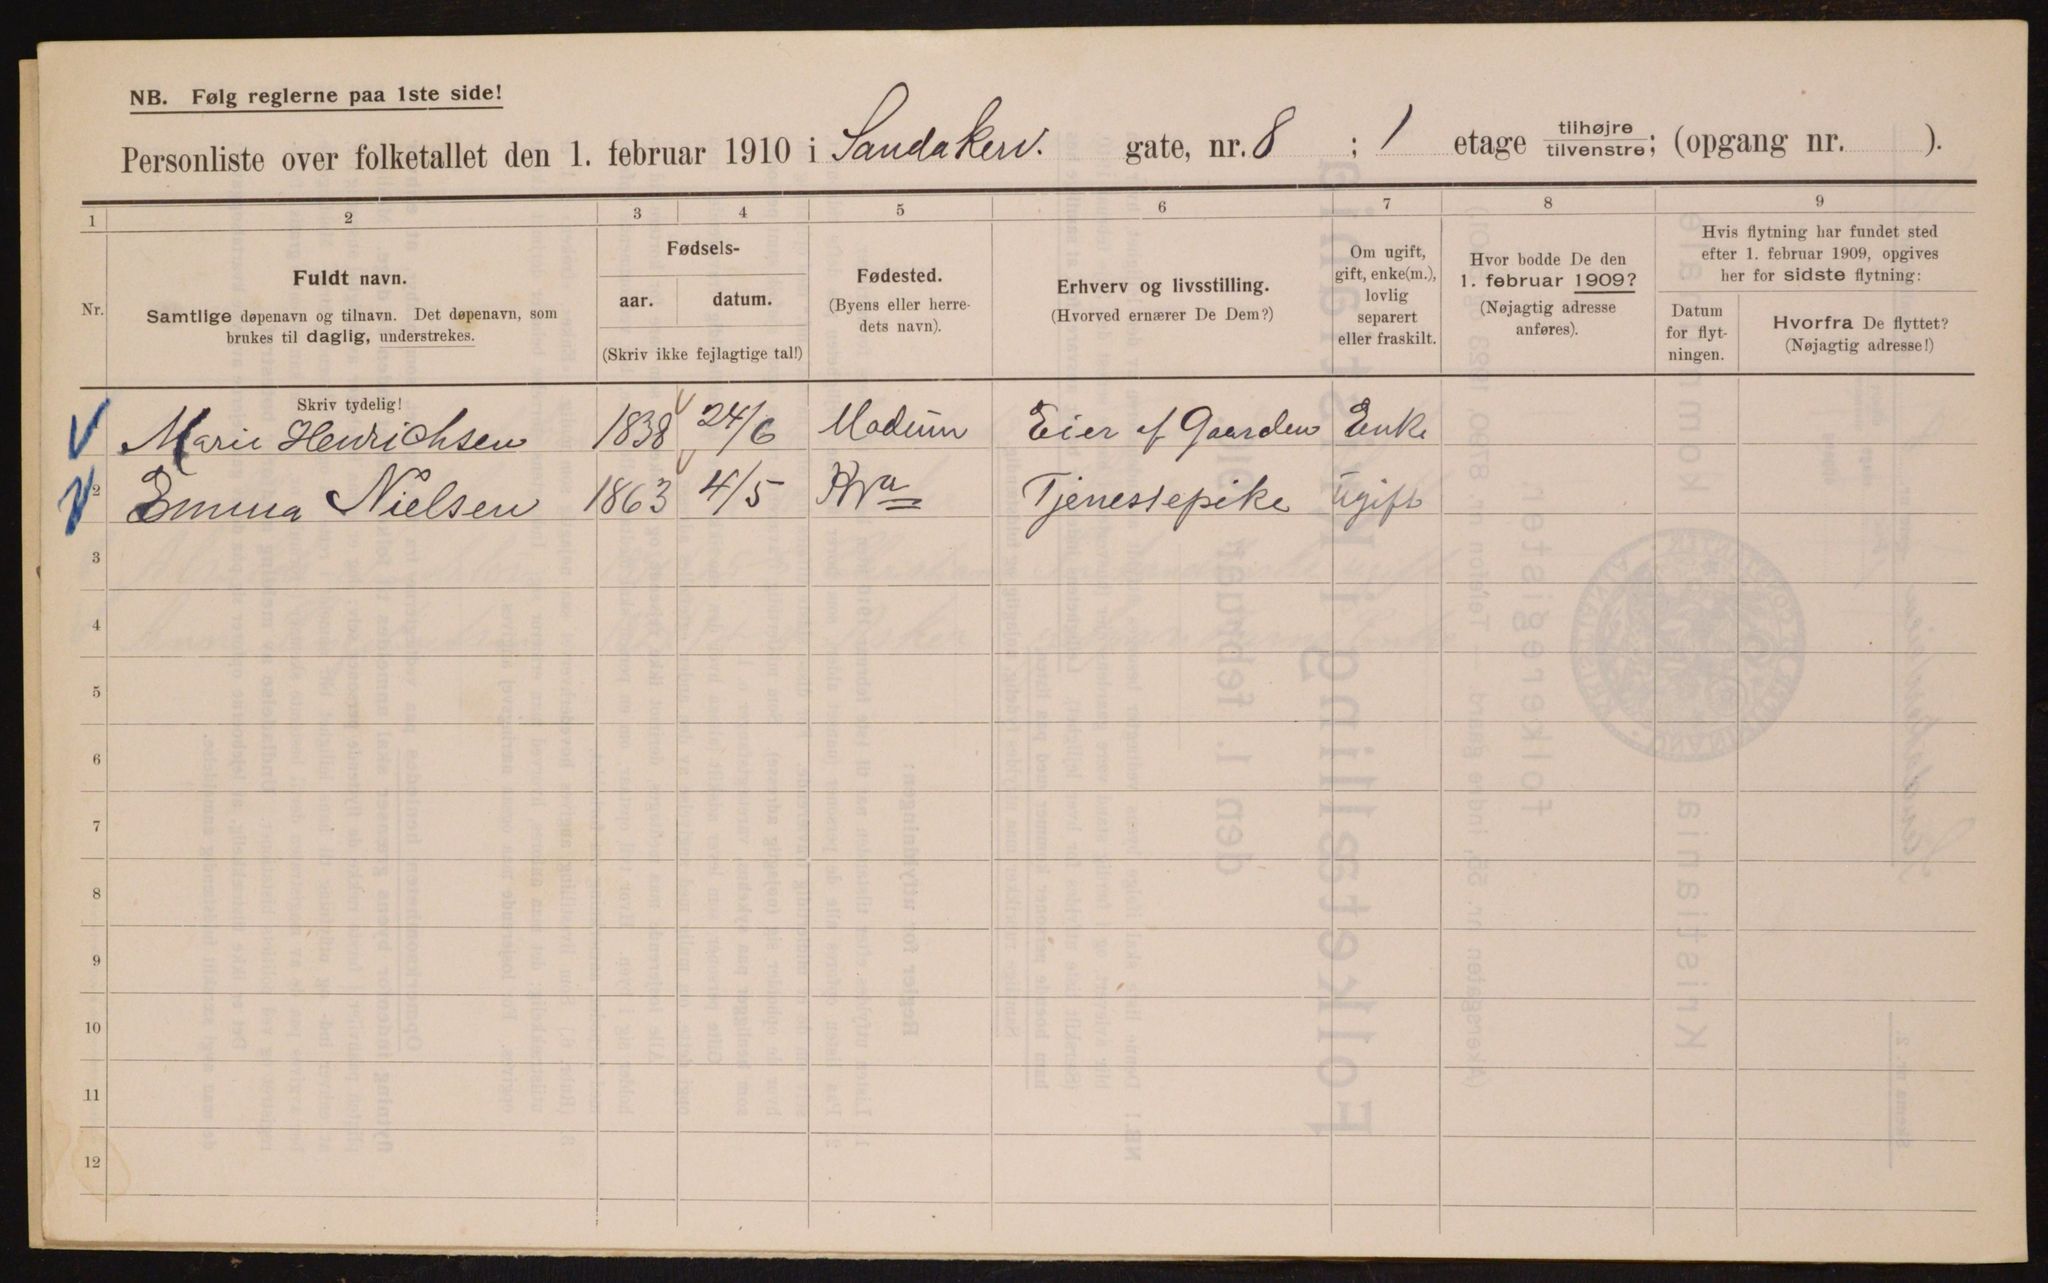 NB. Følg reglerne paa 1ste side!
Personliste over folketallet den 1. februar 1910 i Sandakerv. gate, nr. 8 ; 1 etage tilhøjre tilvenstre; (opgang nr. ).
1 2 3 4 5 6 7 8 9
Nr.
Fuldt navn.
Samtlige døpenavn og tilnavn. Det døpenavn, som
brukes til daglig, understrekes.
Fødsels-
aar. datum.
(Skriv ikke fejlagtige tal!)
Fødested.
(Byens eller herre-
dets navn).
Erhverv og livsstilling.
(Hvorved ernærer De Dem?)
Om ugift,
gift, enke(m.),
lovlig
separert
eller fraskilt.
Hvor bodde De den
1. februar 1909?
(Nøjagtig adresse
anføres).
Hvis flytning har fundet sted
efter 1. februar 1909, opgives
her for sidste flytning:
Datum
for flyt-
ningen.
Hvorfra De flyttet?
(Nøjagtig adresse!)
Skriv tydelig!
Marie Henrichsen 1838 24/6 Modum Eier af Gaarden Enke
2 Emma Nielsen 1863 4/5 Kra Tjenestepike Ugift
3
4
5
6
7
8
9
10
11
12